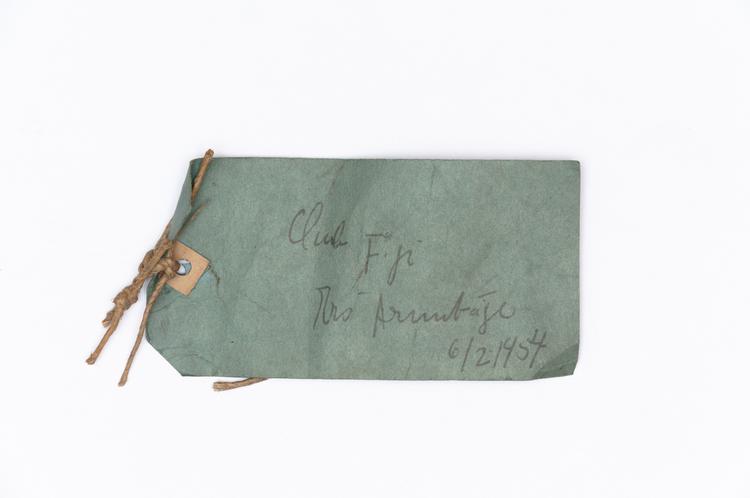 Club Fiji
Mrs Armitage
6/2/1954